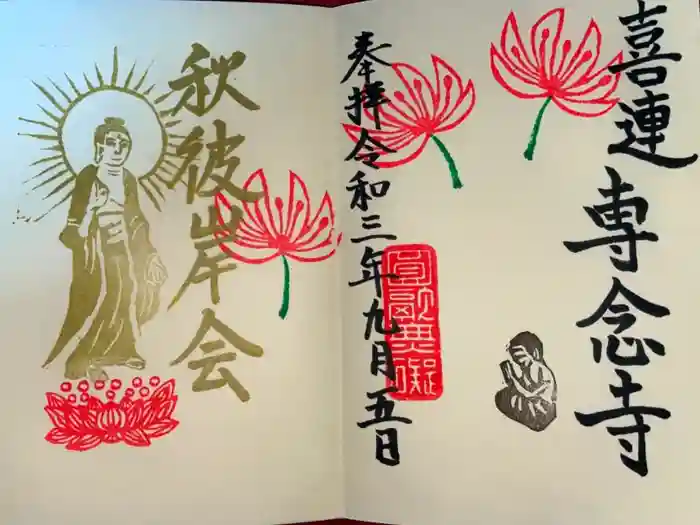 喜連 専念寺
奉拝 令和三年九月五日
圓融無礙
秋彼岸会